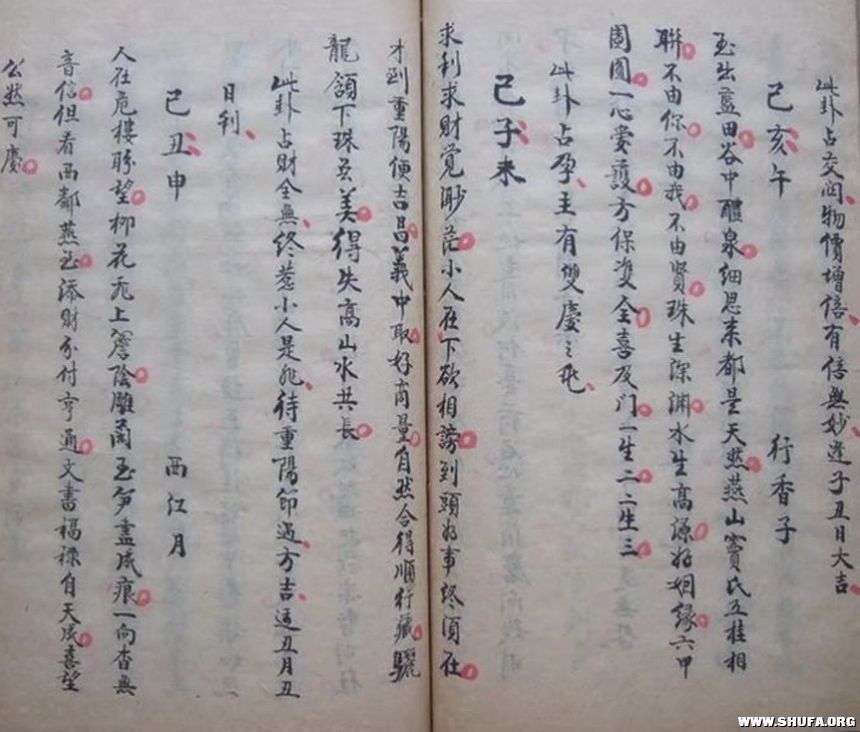 此卦占交關物價增倍有倍無妙逢子丑日大吉
己亥午 行香子
玉出藍田谷中醴泉細思來都是天然燕山竇氏五桂相
聯不由你不由我不由賢珠生深淵水生高源好姻緣六甲
團圓一心要護方保雙全喜及门一生二二生三
此卦占孕主有雙慶之兆
己子未
求利求財覓渺茫小人在下欲相謗到頭好事終須在
才到重陽便吉昌義中取好商量自然合得順行藏驪
龍頷下珠去美得失高山水共長
此卦占財全無終惹小人是非待重陽節過方吉逢丑月丑
日利
己丑申 西江月
人在危樓盼望柳花亢上詹陰雕蘭玉笋盡成痕一向杳無
音信但看西鄰燕玉添財分付亨通文書福祿自天成喜望
公然可慶
WWW.SHUFA.ORG